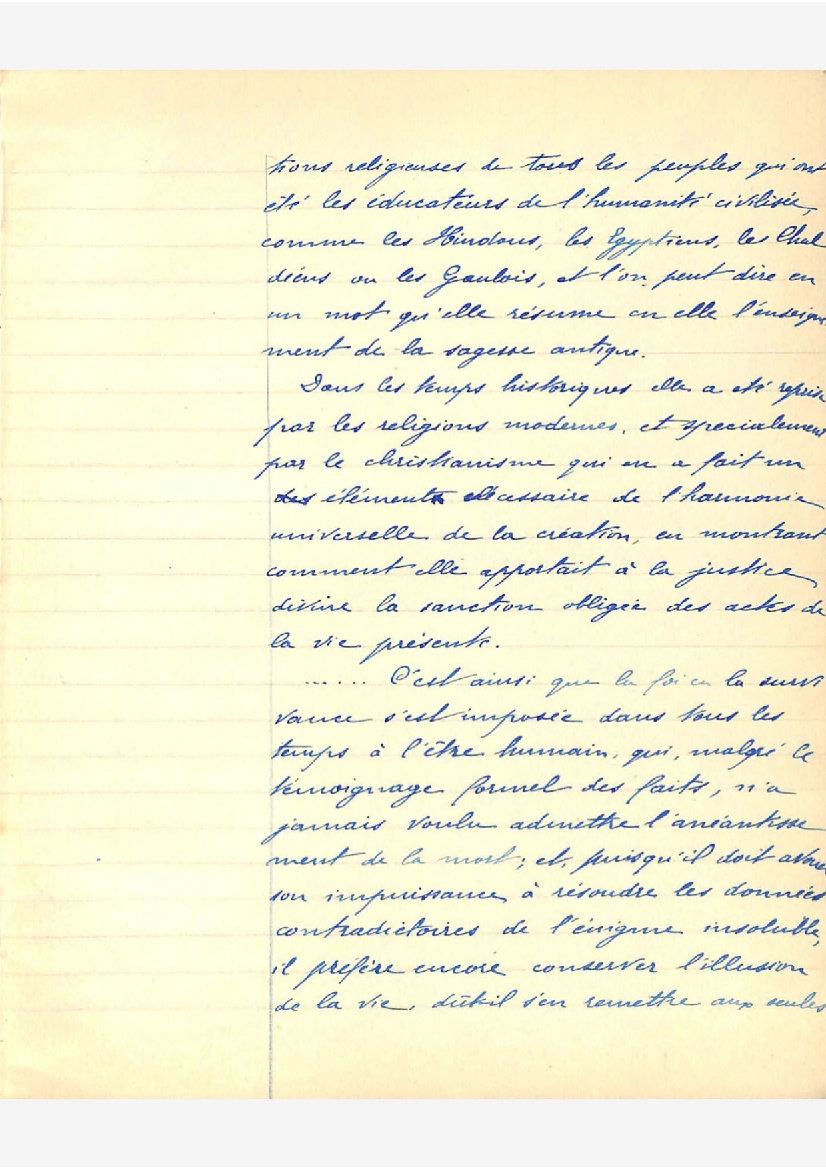 tions religieuses de tous les peuples qui ont
été les éducateurs de l'humanité civilisée,
comme les Hindous, les Egyptiens, les Chal
déens ou les Gaulois, et l'on peut dire en
un mot qu'elle résume en elle l'enseigne
ment de la sagesse antique.
Dans les temps historiques elle a été reprise
par les religions modernes, et spécialement
par le christianisme qui en a fait un
des élément nécessaire de l'harmonie
universelle de la création, en montrant
comment elle apportait à la justice
divine la sanction obligée des actes de
la vie présente.
...... C'est ainsi que la foi en la survi
vance s'est imposée dans tous les
temps à l'être humain, qui, malgré le
témoignage formel des faits, n'a
jamais voulu admettre l'anéantisse
ment de la mort; et, puisqu'il doit avouer
son impuissance à résoudre les données
contradictoires de l'énigme insoluble,
il préfère encore conserver l'illusion
de la vie, dût-il s'en remettre aux seules